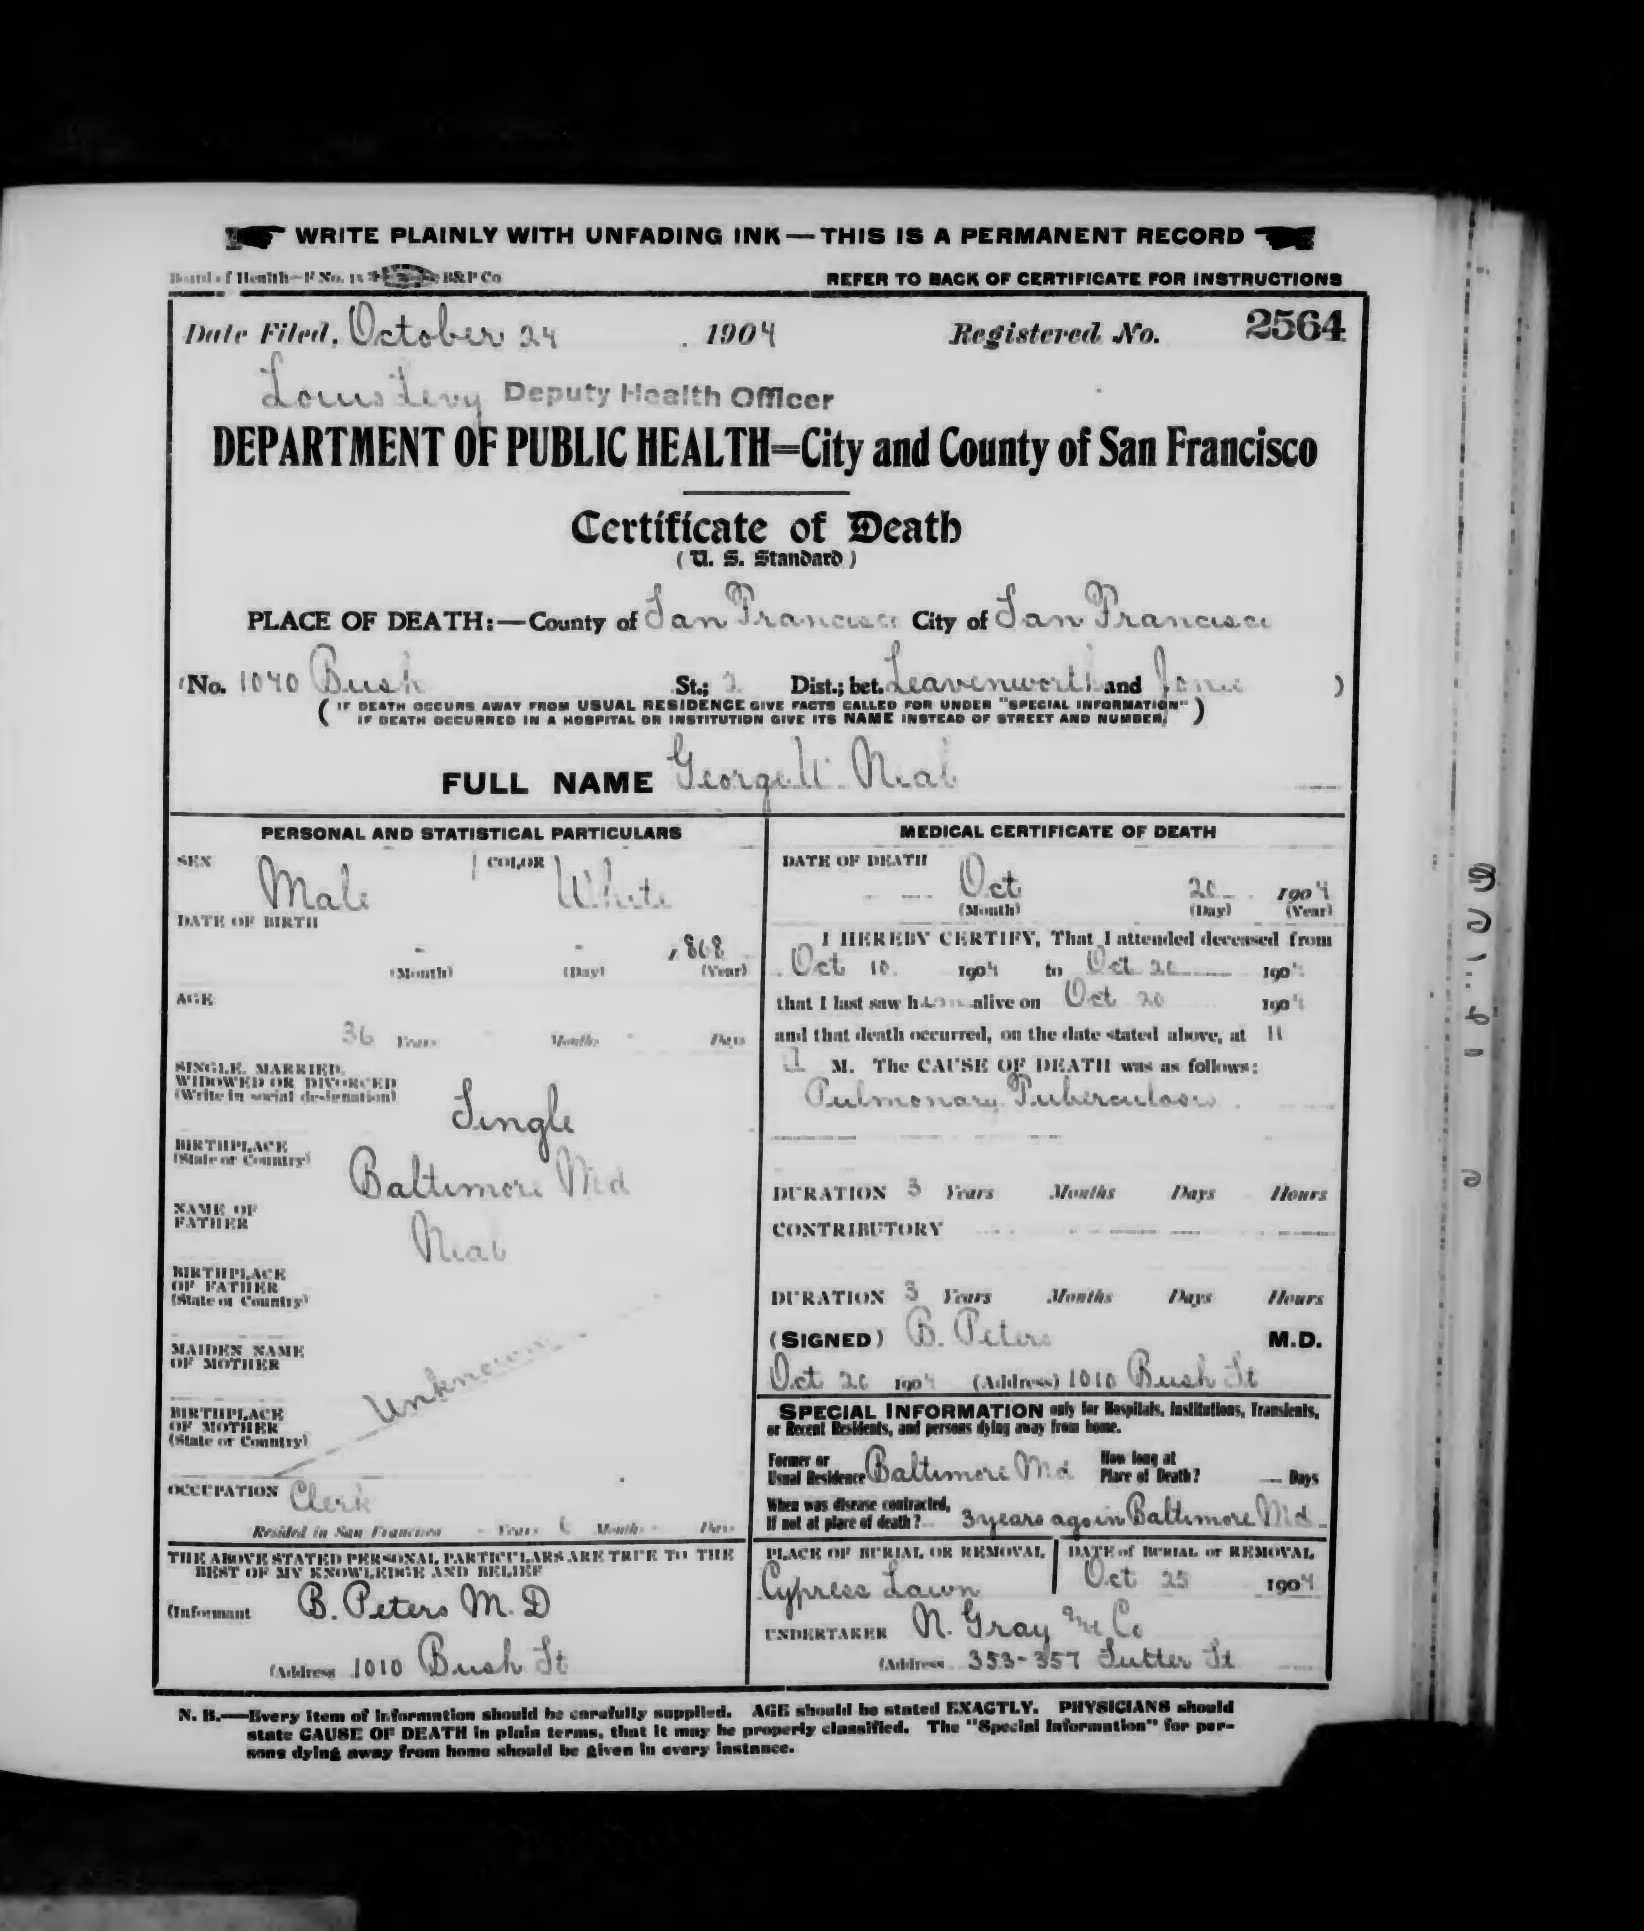 WRITE PLAINLY WITH UNFADING INK — THIS IS A PERMANENT RECORD
Board of Health—F No. B&P Co
REFER TO BACK OF CERTIFICATE FOR INSTRUCTIONS
Date Filed, October 24 1904 Registered No. 2564
Louis Levy Deputy Health Officer
DEPARTMENT OF PUBLIC HEALTH=City and County of San Francisco
Certificate of Death
(U. S. Standard)
PLACE OF DEATH:—County of San Francisco City of San Francisco
(No. 1040 Bush St.; 2 Dist.; bet. Leavenworth and Jones )
( IF DEATH OCCURS AWAY FROM USUAL RESIDENCE GIVE FACTS CALLED FOR UNDER "SPECIAL INFORMATION"
IF DEATH OCCURRED IN A HOSPITAL OR INSTITUTION GIVE ITS NAME INSTEAD OF STREET AND NUMBER. )
FULL NAME George W. Neal
PERSONAL AND STATISTICAL PARTICULARS
SEX Male COLOR White
DATE OF BIRTH
- - 1868
(Month) (Day) (Year)
AGE
36 Years - Months - Days
SINGLE, MARRIED,
WIDOWED OR DIVORCED
(Write in social designation) Single
BIRTHPLACE
(State or Country) Baltimore Md
NAME OF
FATHER Neal
BIRTHPLACE
OF FATHER
(State or Country)
MAIDEN NAME
OF MOTHER
Unknown
BIRTHPLACE
OF MOTHER
(State or Country)
OCCUPATION Clerk
Resided in San Francisco - Years 6 Months - Days
THE ABOVE STATED PERSONAL PARTICULARS ARE TRUE TO THE
BEST OF MY KNOWLEDGE AND BELIEF
(Informant B. Peters M.D
(Address 1010 Bush St
MEDICAL CERTIFICATE OF DEATH
DATE OF DEATH
Oct 20 1904
(Month) (Day) (Year)
I HEREBY CERTIFY, That I attended deceased from
Oct 10 1904 to Oct 20 1904
that I last saw him alive on Oct 20 1904
and that death occurred, on the date stated above, at 11
M. The CAUSE OF DEATH was as follows:
Pulmonary Tuberculosis
DURATION 3 Years Months Days Hours
CONTRIBUTORY
DURATION 3 Years Months Days Hours
(SIGNED) B. Peters M.D.
Oct 20 1904 (Address) 1010 Bush St
SPECIAL INFORMATION only for Hospitals, Institutions, Transients,
or Recent Residents, and persons dying away from home.
Former or
Usual Residence Baltimore Md
How long at
Place of Death? Days
When was disease contracted,
If not at place of death? 3 years ago in Baltimore Md.
PLACE OF BURIAL OR REMOVAL
Cypress Lawn
DATE of BURIAL or REMOVAL
Oct 25 1904
UNDERTAKER N. Gray & Co
(Address 353-357 Sutter St
N. B.—Every item of information should be carefully supplied. AGE should be stated EXACTLY. PHYSICIANS should
state CAUSE OF DEATH in plain terms, that it may be properly classified. The "Special Information" for per-
sons dying away from home should be given in every instance.